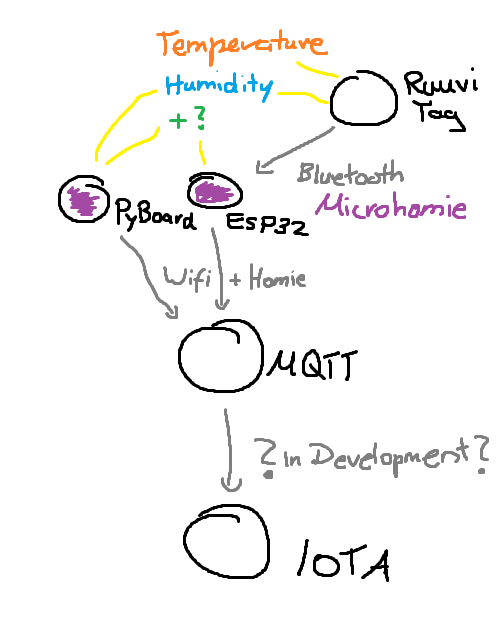 Temperature
Humidity
+ ?
Ruuvi
Tag
Bluetooth
Microhomie
PyBoard
ESP32
Wifi + Homie
MQTT
? in Development?
IOTA